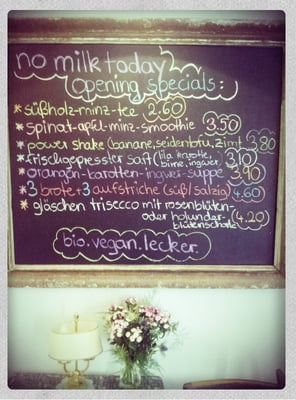 no milk today
opening specials:
* süßholz-minz-tee 2.60
* spinat-apfel-minz-smoothie 3.50
* power shake (banane, seidentofu, zimt 3.80
* frischgepresster saft (lila karotte, birne, ingwer 3.10
* orangen-karotten-ingwer-suppe 3.90
* 3 brote + 3 aufstriche (süß/salzig) 4.60
* gläschen trisecco mit rosenblüten-
oder holunder-
blütenschorle (4.20)
bio.vegan.lecker.